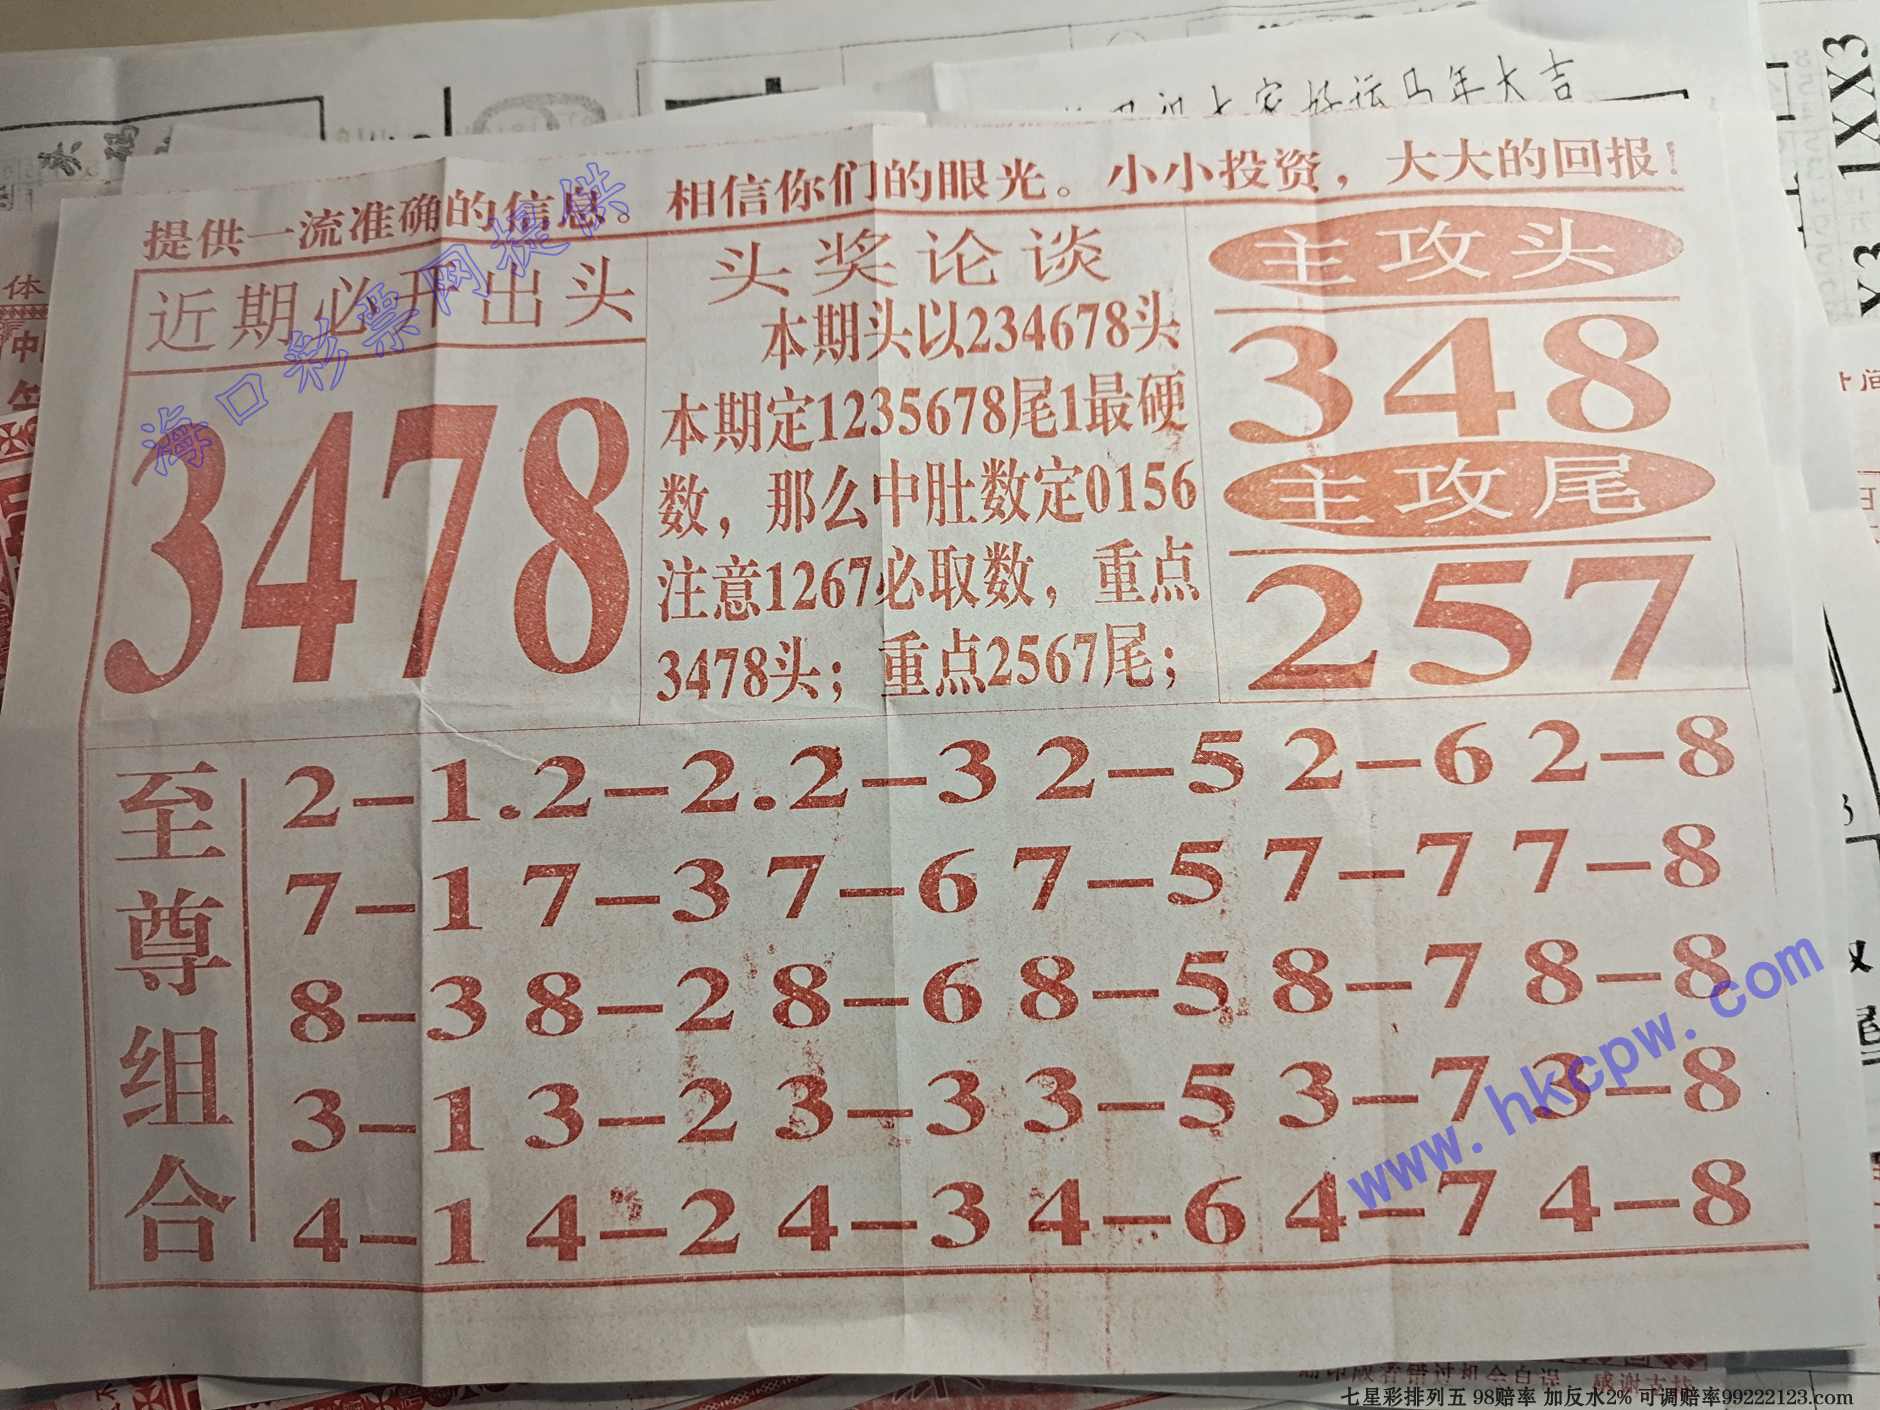 大家好运马年大吉
1XX3
X3
提供一流准确的信息。相信你们的眼光。小小投资，大大的回报！
海口彩票网提供
近期必开出头
3478
头奖论谈
本期头以234678头
本期定1235678尾1最硬
数，那么中肚数定0156
注意1267必取数，重点
3478头；重点2567尾；
主攻头
348
主攻尾
257
至尊组合
2-1.2-2.2-3 2-5 2-6 2-8
7-1 7-3 7-6 7-5 7-7 7-8
8-3 8-2 8-6 8-5 8-7 8-8
3-1 3-2 3-3 3-5 3-7 3-8
4-1 4-2 4-3 4-6 4-7 4-8
www.hkcpw.com
七星彩排列五 98赔率 加反水2% 可调赔率99222123.com